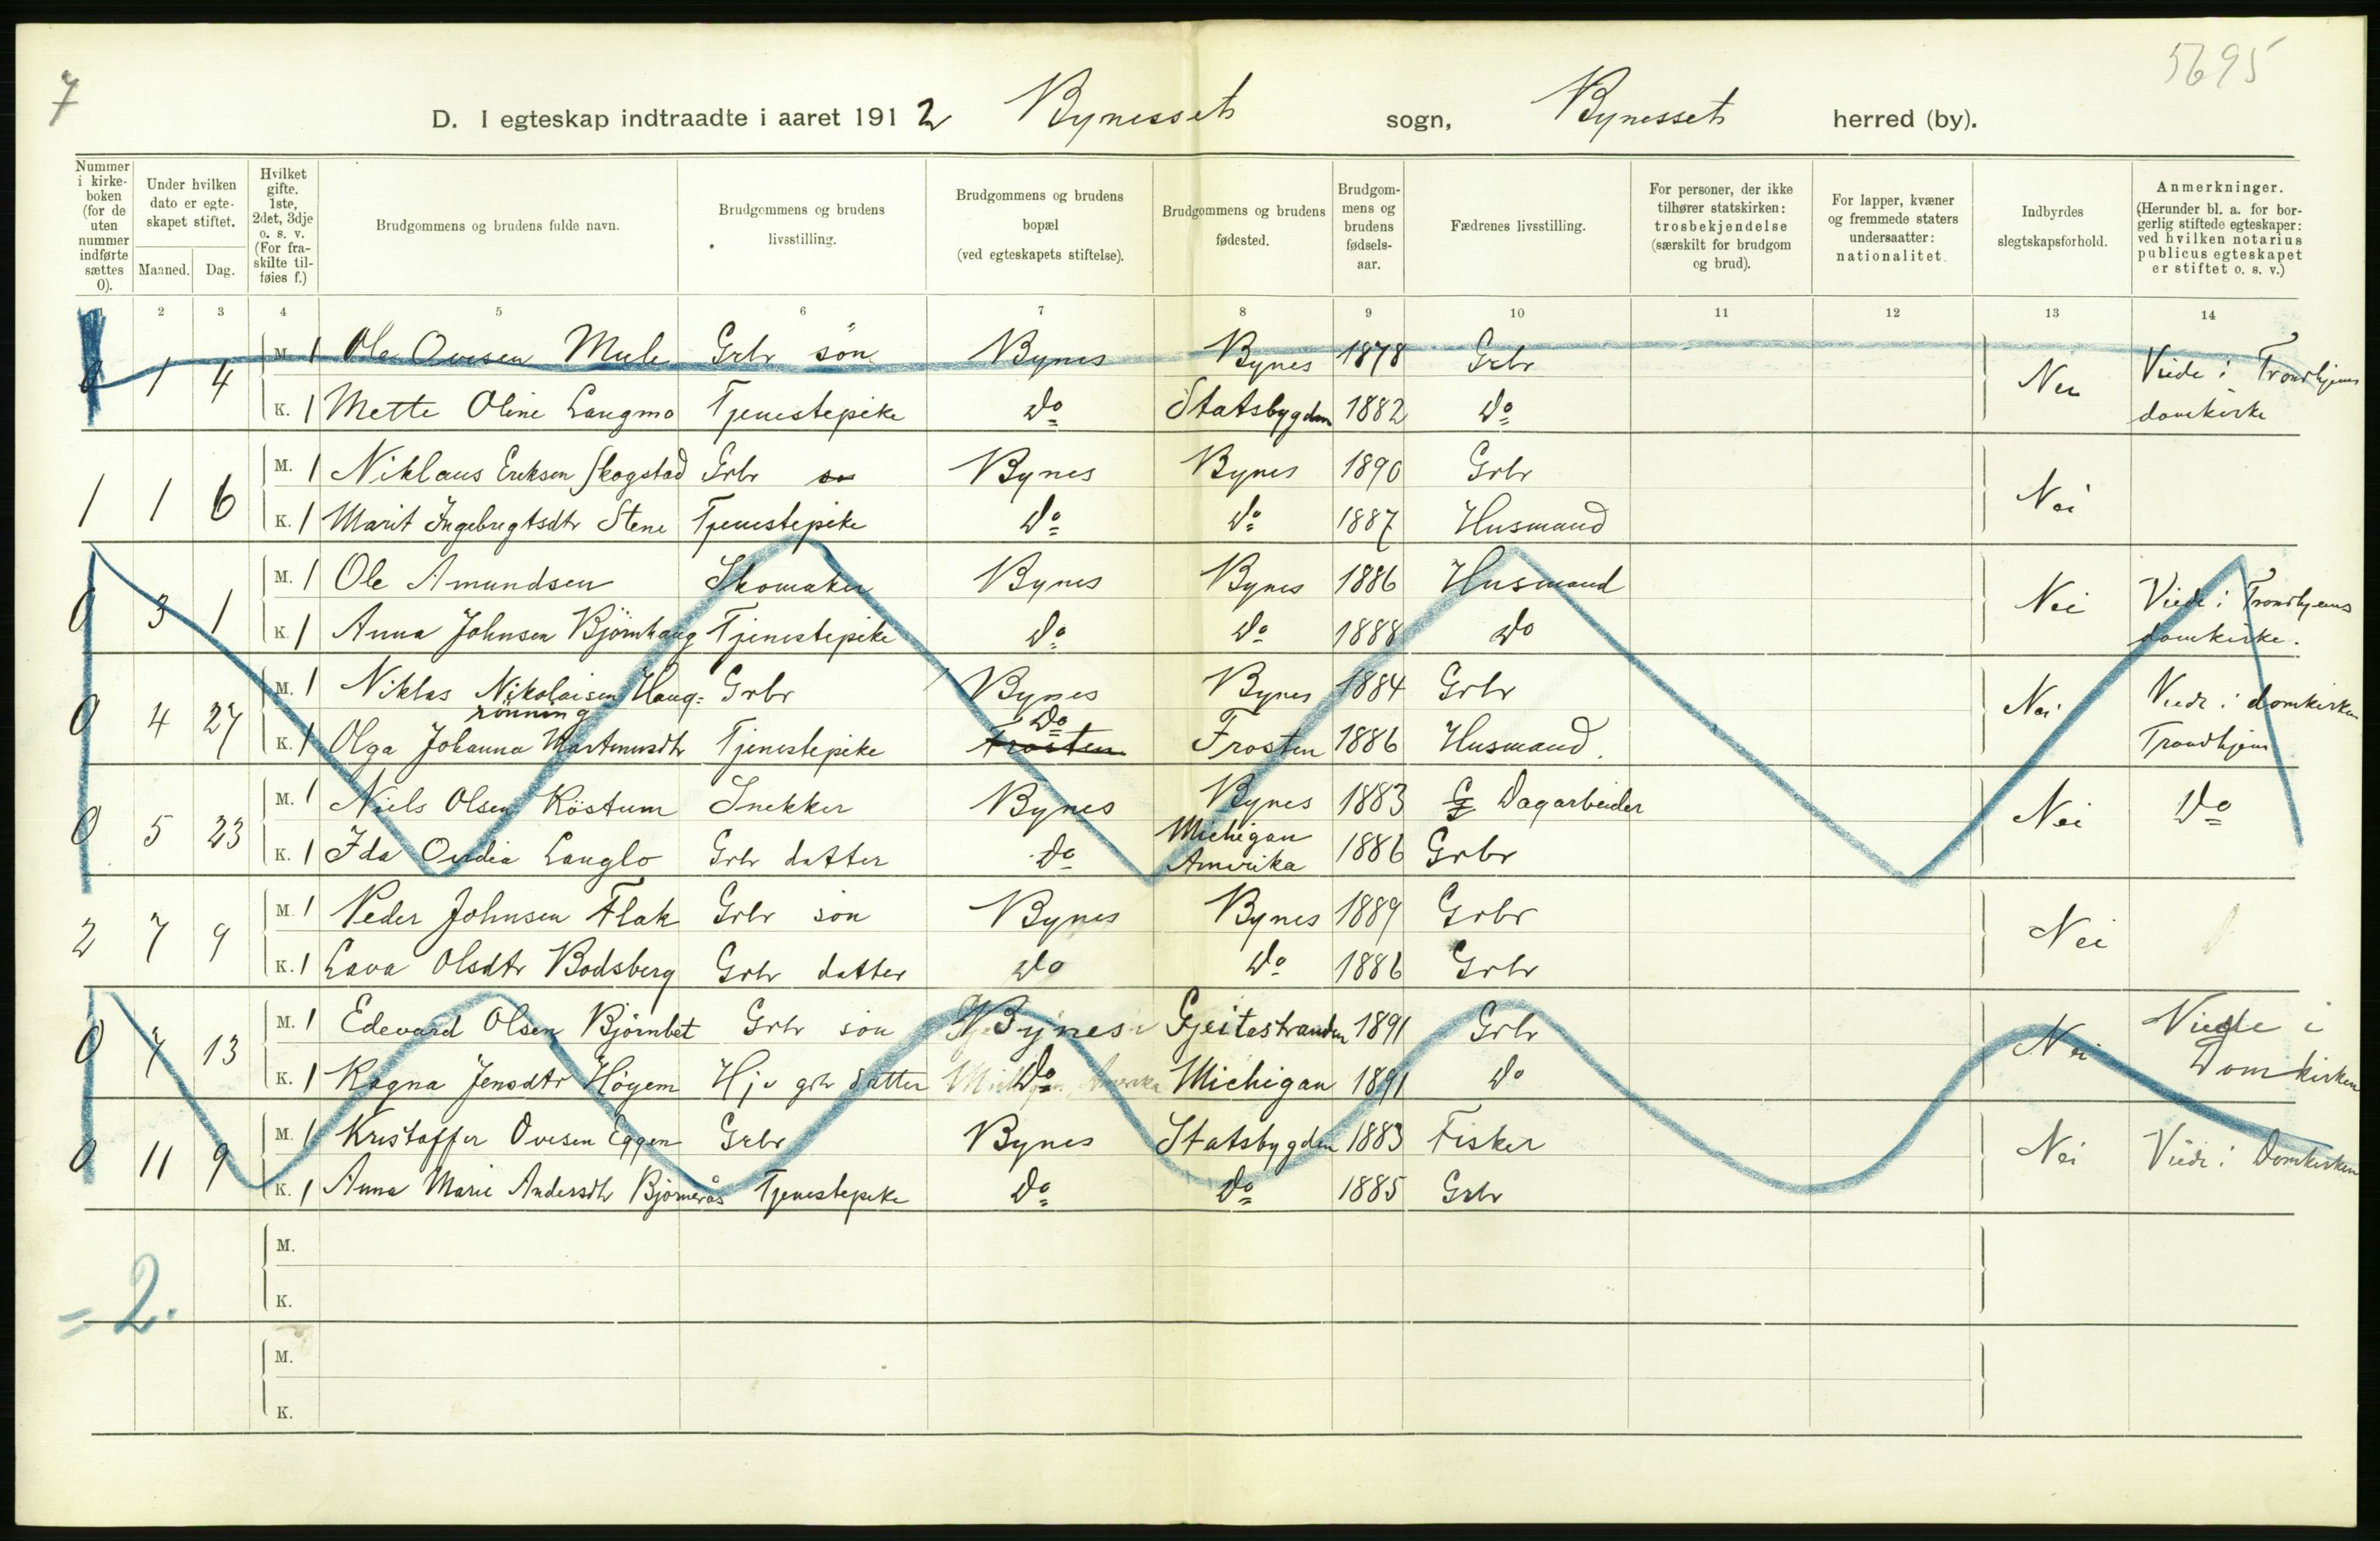 7
5695
D. I egteskap indtraadte i aaret 1912 Bynesset sogn, Bynesset herred (by).
Nummer i kirke- boken (for de uten nummer indførte sættes 0).
Under hvilken dato er egte- skapet stiftet.
Maaned. Dag.
Hvilket gifte. 1ste, 2det, 3dje o. s. v. (For fra- skilte til- føies f.)
Brudgommens og brudens fulde navn.
Brudgommens og brudens livsstilling.
Brudgommens og brudens bopæl (ved egteskapets stiftelse).
Brudgommens og brudens fødested.
Brudgom- mens og brudens fødsels- aar.
Fædrenes livsstilling.
For personer, der ikke tilhører statskirken: trosbekjendelse (særskilt for brudgom og brud).
For lapper, kvæner og fremmede staters undersaatter: nationalitet.
Indbyrdes slegtskapsforhold.
Anmerkninger. (Herunder bl. a. for bor- gerlig stiftede egteskaper: ved hvilken notarius publicus egteskapet er stiftet o. s. v.)
1 2 3 4 5 6 7 8 9 10 11 12 13 14
0 1 4 M. 1 Ole Ovesen Mule Grbr sön Bynes Bynes 1878 Grbr Nei Viede i Trondhjems
K. 1 Mette Oline Langmo Tjenestepike Do Statsbygden 1882 Do domkirke
1 1 6 M. 1 Niklaus Eriksen Skogstad Grbr so Bynes Bynes 1890 Grbr Nei
K. 1 Marit Ingebrigtsdtr Stene Tjenestepike Do Do 1887 Husmand
0 3 1 M. 1 Ole Amundsen Skomaker Bynes Bynes 1886 Husmand Nei Viede i Trondhjems
K. 1 Anna Johnsen Bjørnhaug Tjenestepike Do Do 1888 Do domkirke.
0 4 27 M. 1 Niklas Nikolaisen Haug- Grbr Bynes Bynes 1884 Grbr Nei Viede i domkirken
rönning Do
K. 1 Olga Johanna Martinusdtr Tjenestepike Frosten Frosten 1886 Husmand. Trondhjem
0 5 23 M. 1 Niels Olsen Köstum Snekker Bynes Bynes 1883 G Dagarbeider Nei Do
K. 1 Ida Ovidia Langlo Grbr datter Do Michigan Amerika 1886 Grbr
2 7 9 M. 1 Peder Johnsen Flak Grbr son Bynes Bynes 1889 Grbr Nei
K. 1 Lava Olsdtr Bodsberg Grbr datter Do Do 1886 Grbr
0 7 13 M. 1 Edevard Olsen Bjørnbet Grbr son Bynes Gjeitastranden 1891 Grbr Nei Viede i
K. 1 Ragna Jensdtr Höyem Hjv grbr datter Do Michigan 1891 Do Domkirken
0 11 9 M. 1 Kristoffer Ovesen Eggen Grbr Bynes Statsbygden 1883 Fisker Nei Viede i Domkirken
K. 1 Anna Marie Andersdtr Bjørnerås Tjenestepike Do Do 1885 Grbr
M.
K.
= 2.
M.
K.